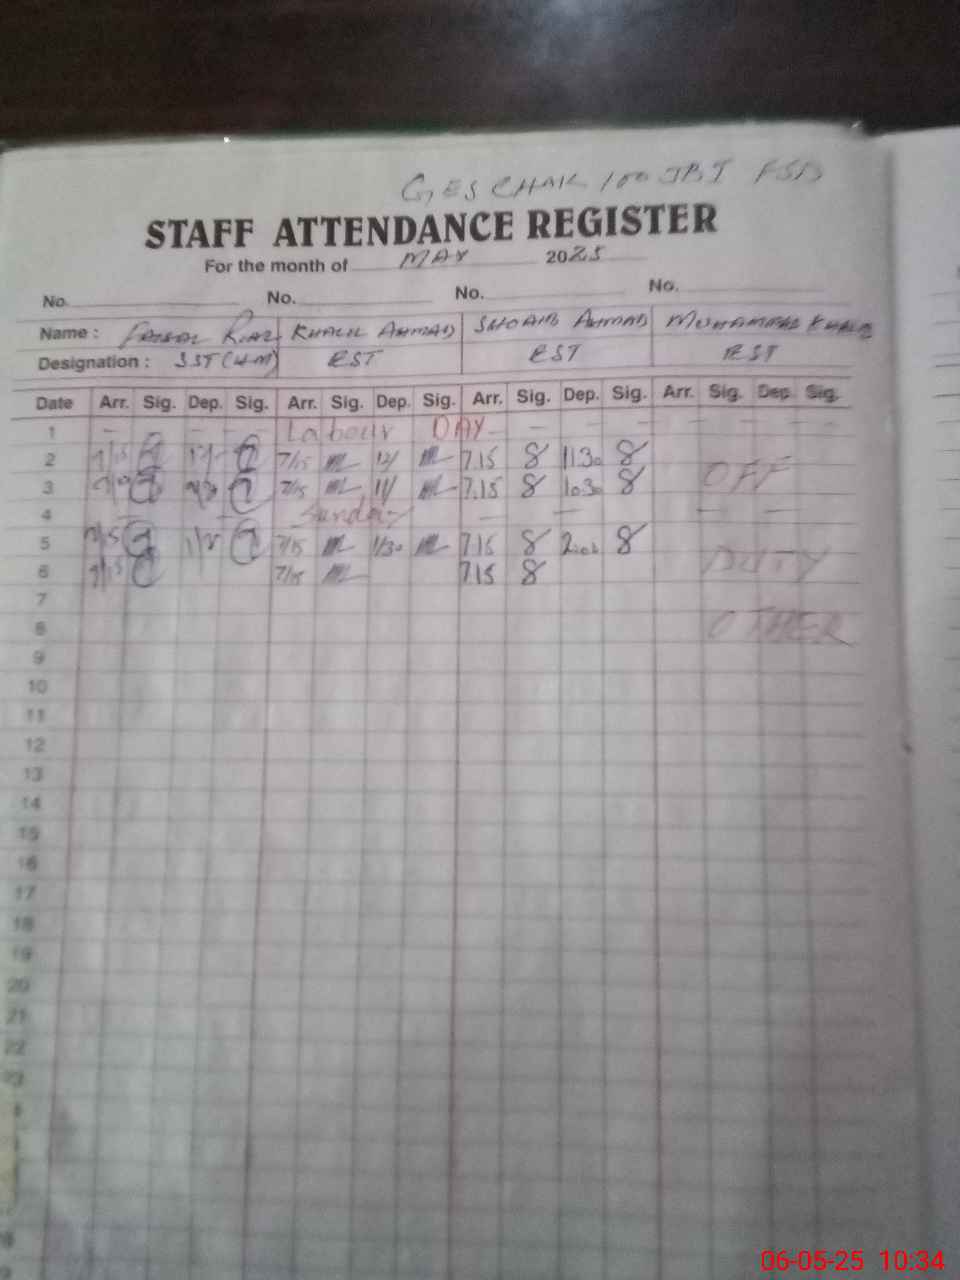 GES CHAK 100 JB I FSD
STAFF ATTENDANCE REGISTER
For the month of MAY 2025
No. No. No. No.
Name : Faisal Riaz KHALIL AHMAD SHOAIB AHMAD MUHAMMAD KHALID
Designation : SST (HM) EST EST EST
Date Arr. Sig. Dep. Sig. Arr. Sig. Dep. Sig. Arr. Sig. Dep. Sig. Arr. Sig. Dep. Sig.
1 Labour DAY
2 7/15 12/ 7.15 1130
3 7/15 11/ 7.15 1030 OFF
4 Sunday
5 7/15 1/30 7.15 2.00
6 7/15 7/15 7.15 DUTY
7
8 OTHER
9
10
11
12
13
14
15
16
17
18
19
20
21
22
23
06-05-25 10:34